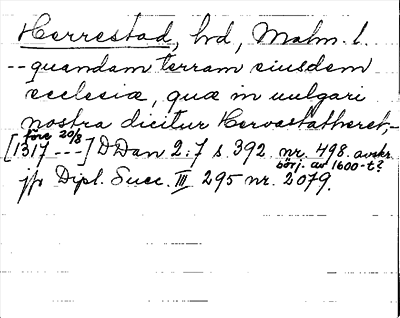 Herrestad, hd, Malm. l.
-- quandam terram eiusdem
ecclesiæ, quæ in uulgari
nostra dicitur Hervestatheret,-
före 20/8
[1317 ---] DDan 2:7 s. 392 nr. 498. avskr.
börj. av 1600-t?
jfr Dipl. Suec. III 295 nr. 2079.